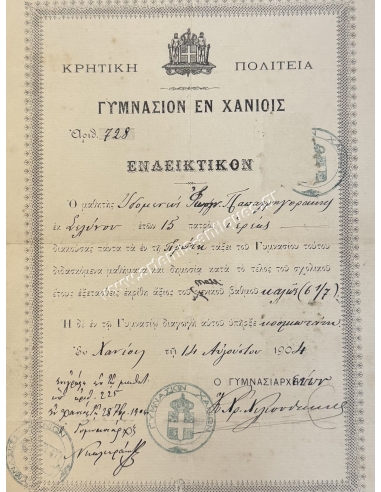 ΚΡΗΤΙΚΗ ΠΟΛΙΤΕΙΑ
ΓΥΜΝΑΣΙΟΝ ΕΝ ΧΑΝΙΟΙΣ
Ἀριθ. 728
ΕΝΔΕΙΚΤΙΚΟΝ
Ὁ μαθητὴς Ἰδομενεὺς Παπαγρηγοράκης
ἐκ Σελίνου ἐτῶν 15 πατρὸς
διακούσας πάντα τὰ ἐν τῇ πρώτῃ τάξει τοῦ Γυμνασίου τούτου
διδασκόμενα μαθήματα καὶ δημοσίᾳ κατὰ τὸ τέλος τοῦ σχολικοῦ
ἔτους ἐξετασθεὶς ἐκρίθη ἄξιος τοῦ γενικοῦ βαθμοῦ καλῶς (6 1/7)
Ἡ δὲ ἐν τῷ Γυμνασίῳ διαγωγὴ αὐτοῦ ὑπῆρξε κοσμιωτάτη
Ἐν Χανίοις τῇ 14 Αὐγούστου 1904
Ο ΓΥΜΝΑΣΙΑΡΧΗΣ
ἀριθ. 225
ἐν Χανίοις 28
ΓΥΜΝΑΣΙΟΝ ΧΑΝΙΩΝ